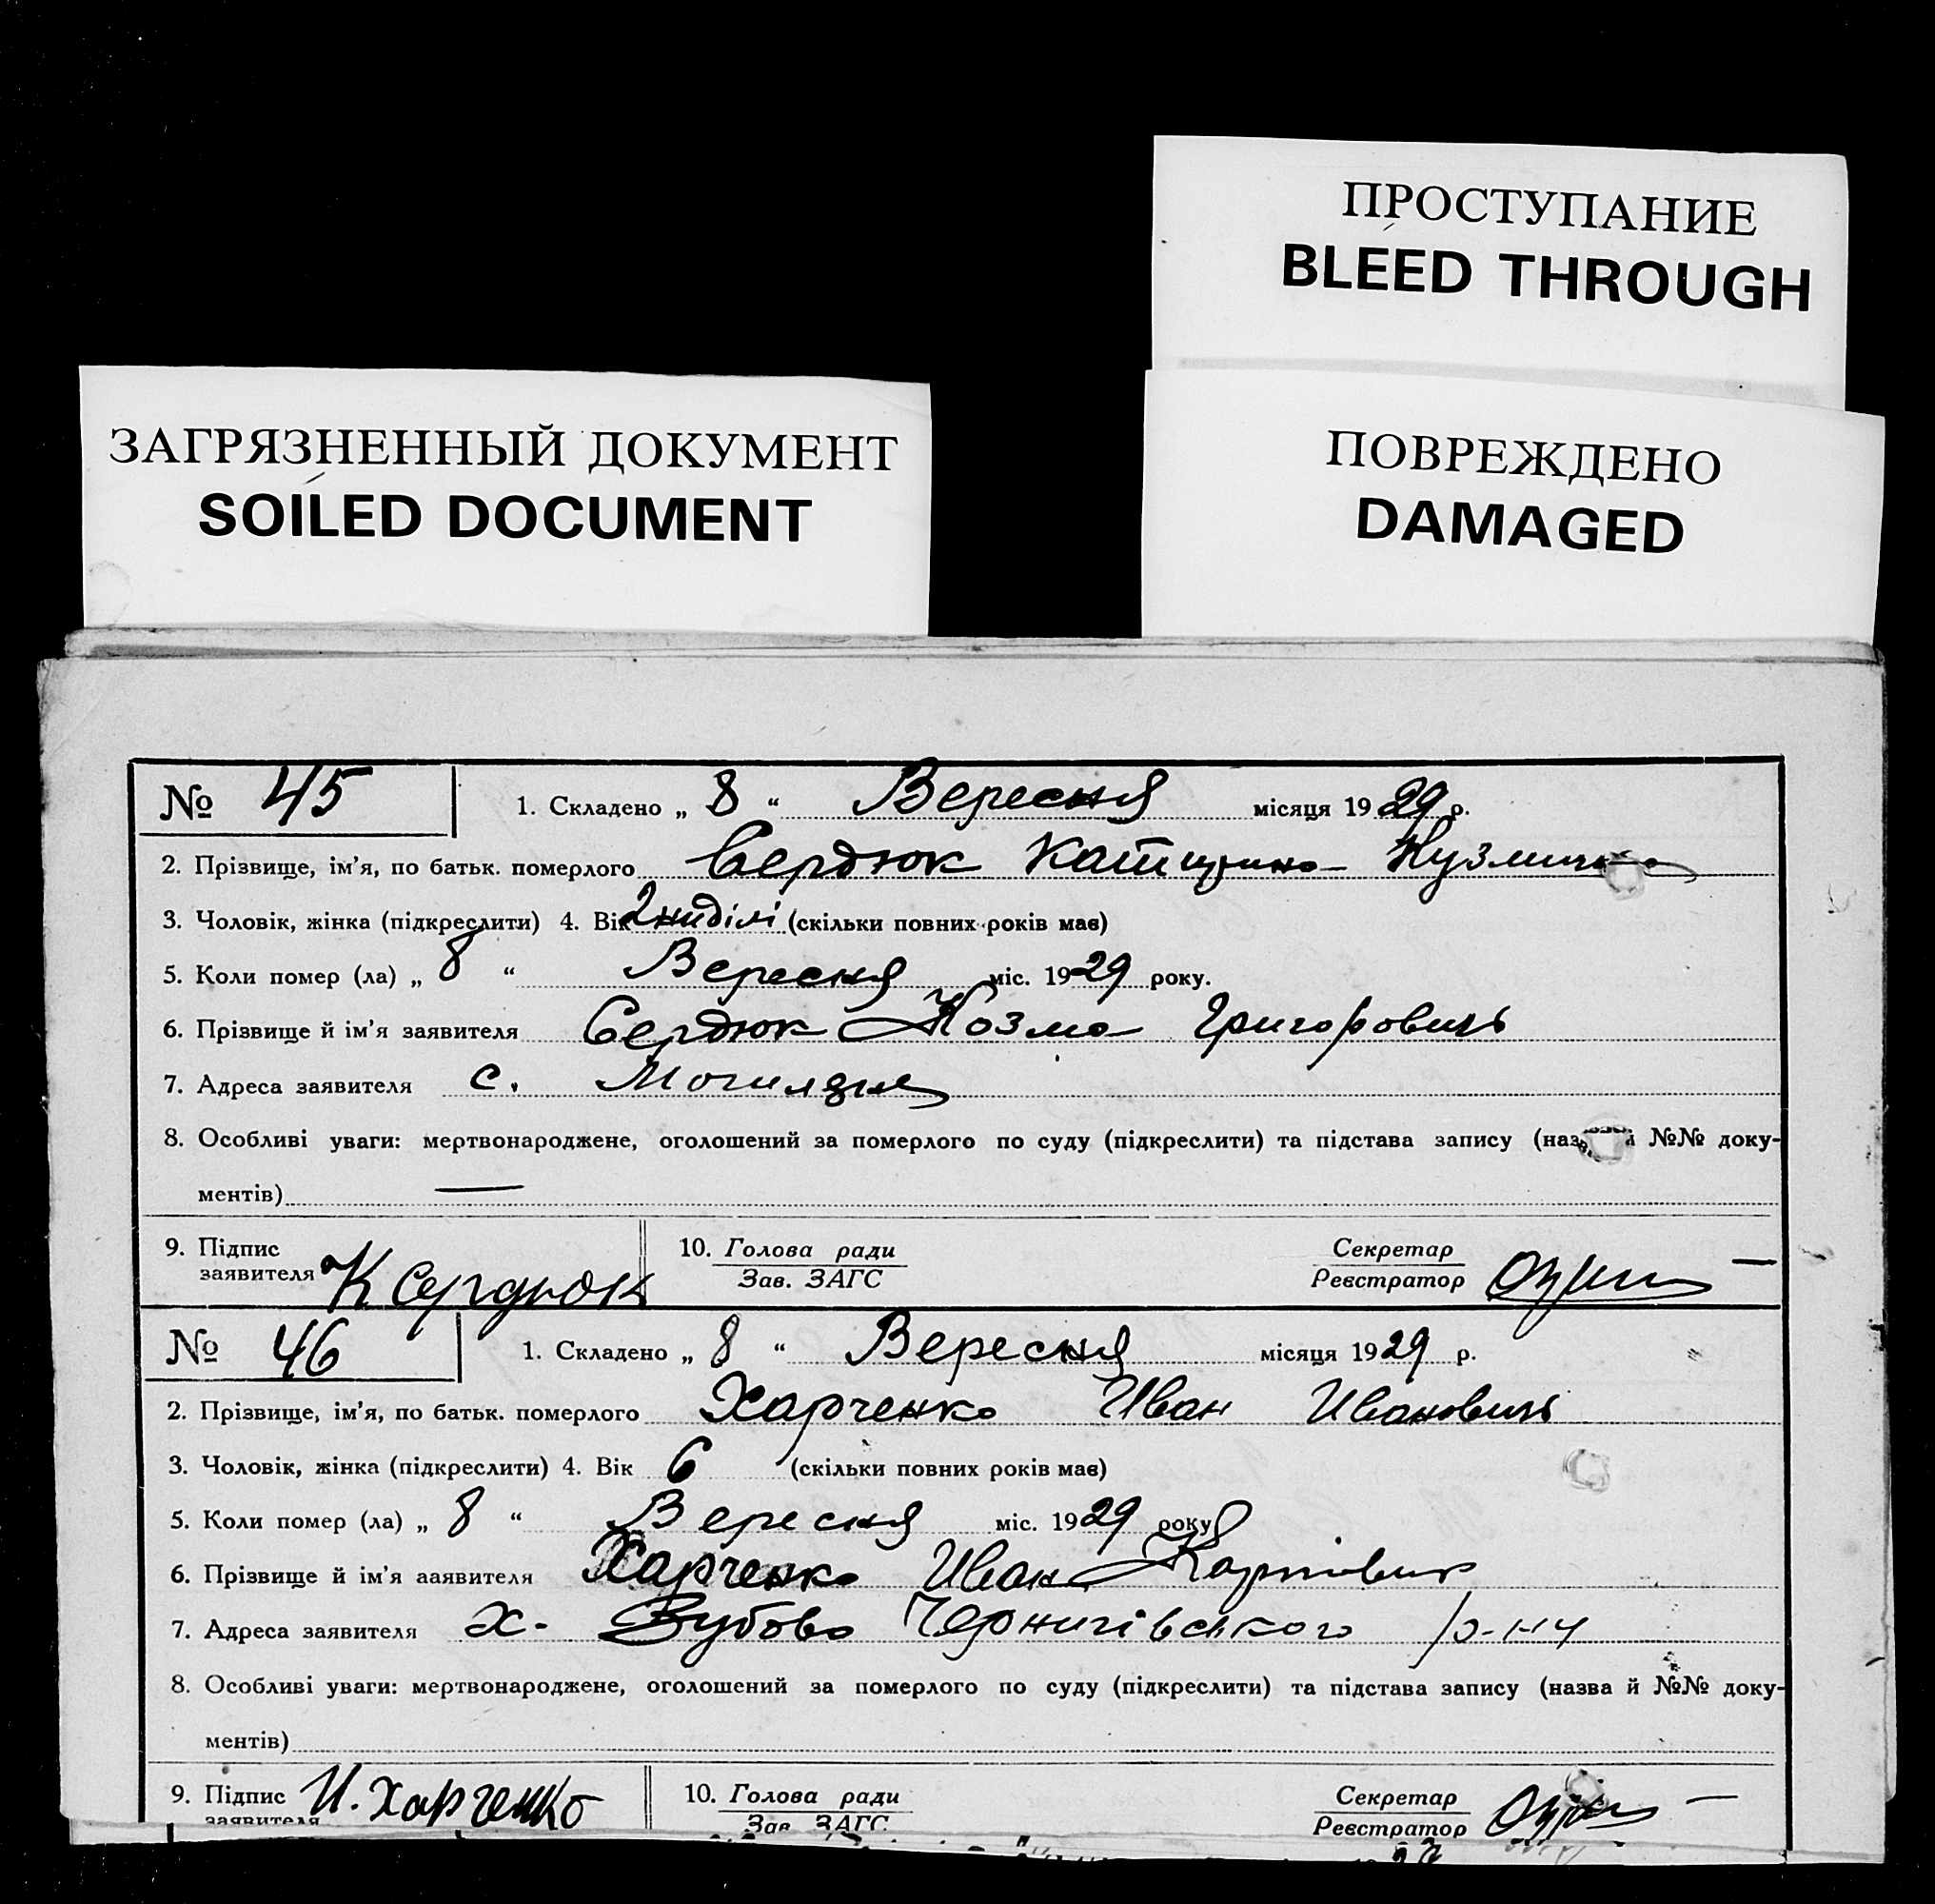 ПРОСТУПАНИЕ
BLEED THROUGH
ЗАГРЯЗНЕННЫЙ ДОКУМЕНТ
SOILED DOCUMENT
ПОВРЕЖДЕНО
DAMAGED
№ 45 1. Складено „ 8 “ Вересня місяця 1929 р.
2. Прізвище, ім'я, по батьк. померлого Сердюк Катирина
3. Чоловік, жінка (підкреслити) 4. Вік 2 ниділі (скільки повних років має)
5. Коли помер (ла) „ 8 “ Вересня міс. 1929 року.
6. Прізвище й ім'я заявителя Сердюк Козма Григоровичь
7. Адреса заявителя с.
8. Особливі уваги: мертвонароджене, оголошений за померлого по суду (підкреслити) та підстава запису (назва й №№ доку-
ментів) —
9. Підпис заявителя К Сердюк 10. Голова ради Зав. ЗАГС Секретар Реєстратор
№ 46 1. Складено „ 8 “ Вересня місяця 1929 р.
2. Прізвище, ім'я, по батьк. померлого Харченко Иван Ивановичь
3. Чоловік, жінка (підкреслити) 4. Вік 6 (скільки повних років має)
5. Коли помер (ла) „ 8 “ Вересня міс. 1929 року
6. Прізвище й ім'я ааявителя Харченко Иван Карпович
7. Адреса заявителя х. Зубово Чернигівського р-ну
8. Особливі уваги: мертвонароджене, оголошений за померлого по суду (підкреслити) та підстава запису (назва й №№ доку-
ментів)
9. Підпис заявителя И. Харченко 10. Голова ради Зав. ЗАГС Секретар Реєстратор